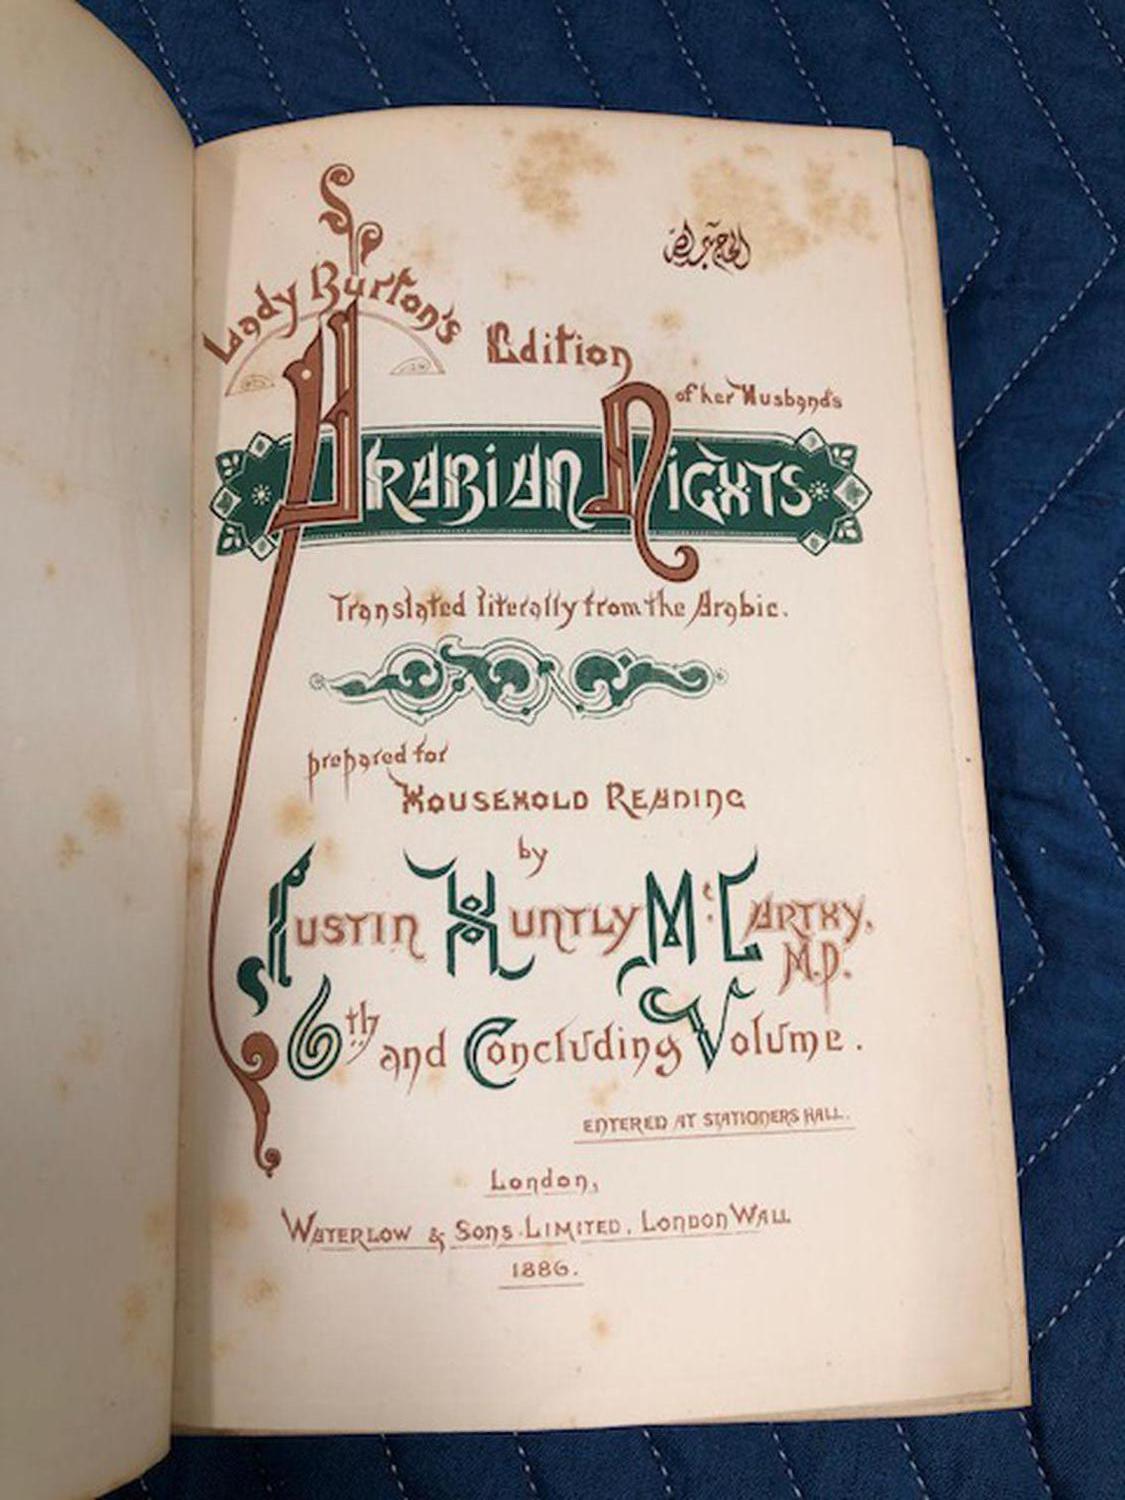 الحاج عبد الله
Lady Burton's Edition
of her Husband's
ARABIAN NIGHTS
Translated literally from the Arabic.
prepared for
HOUSEHOLD READING
by
JUSTIN HUNTLY McCARTHY,
M.P.
6th and Concluding Volume.
ENTERED AT STATIONERS HALL.
London,
WATERLOW & SONS LIMITED, LONDON WALL
1886.